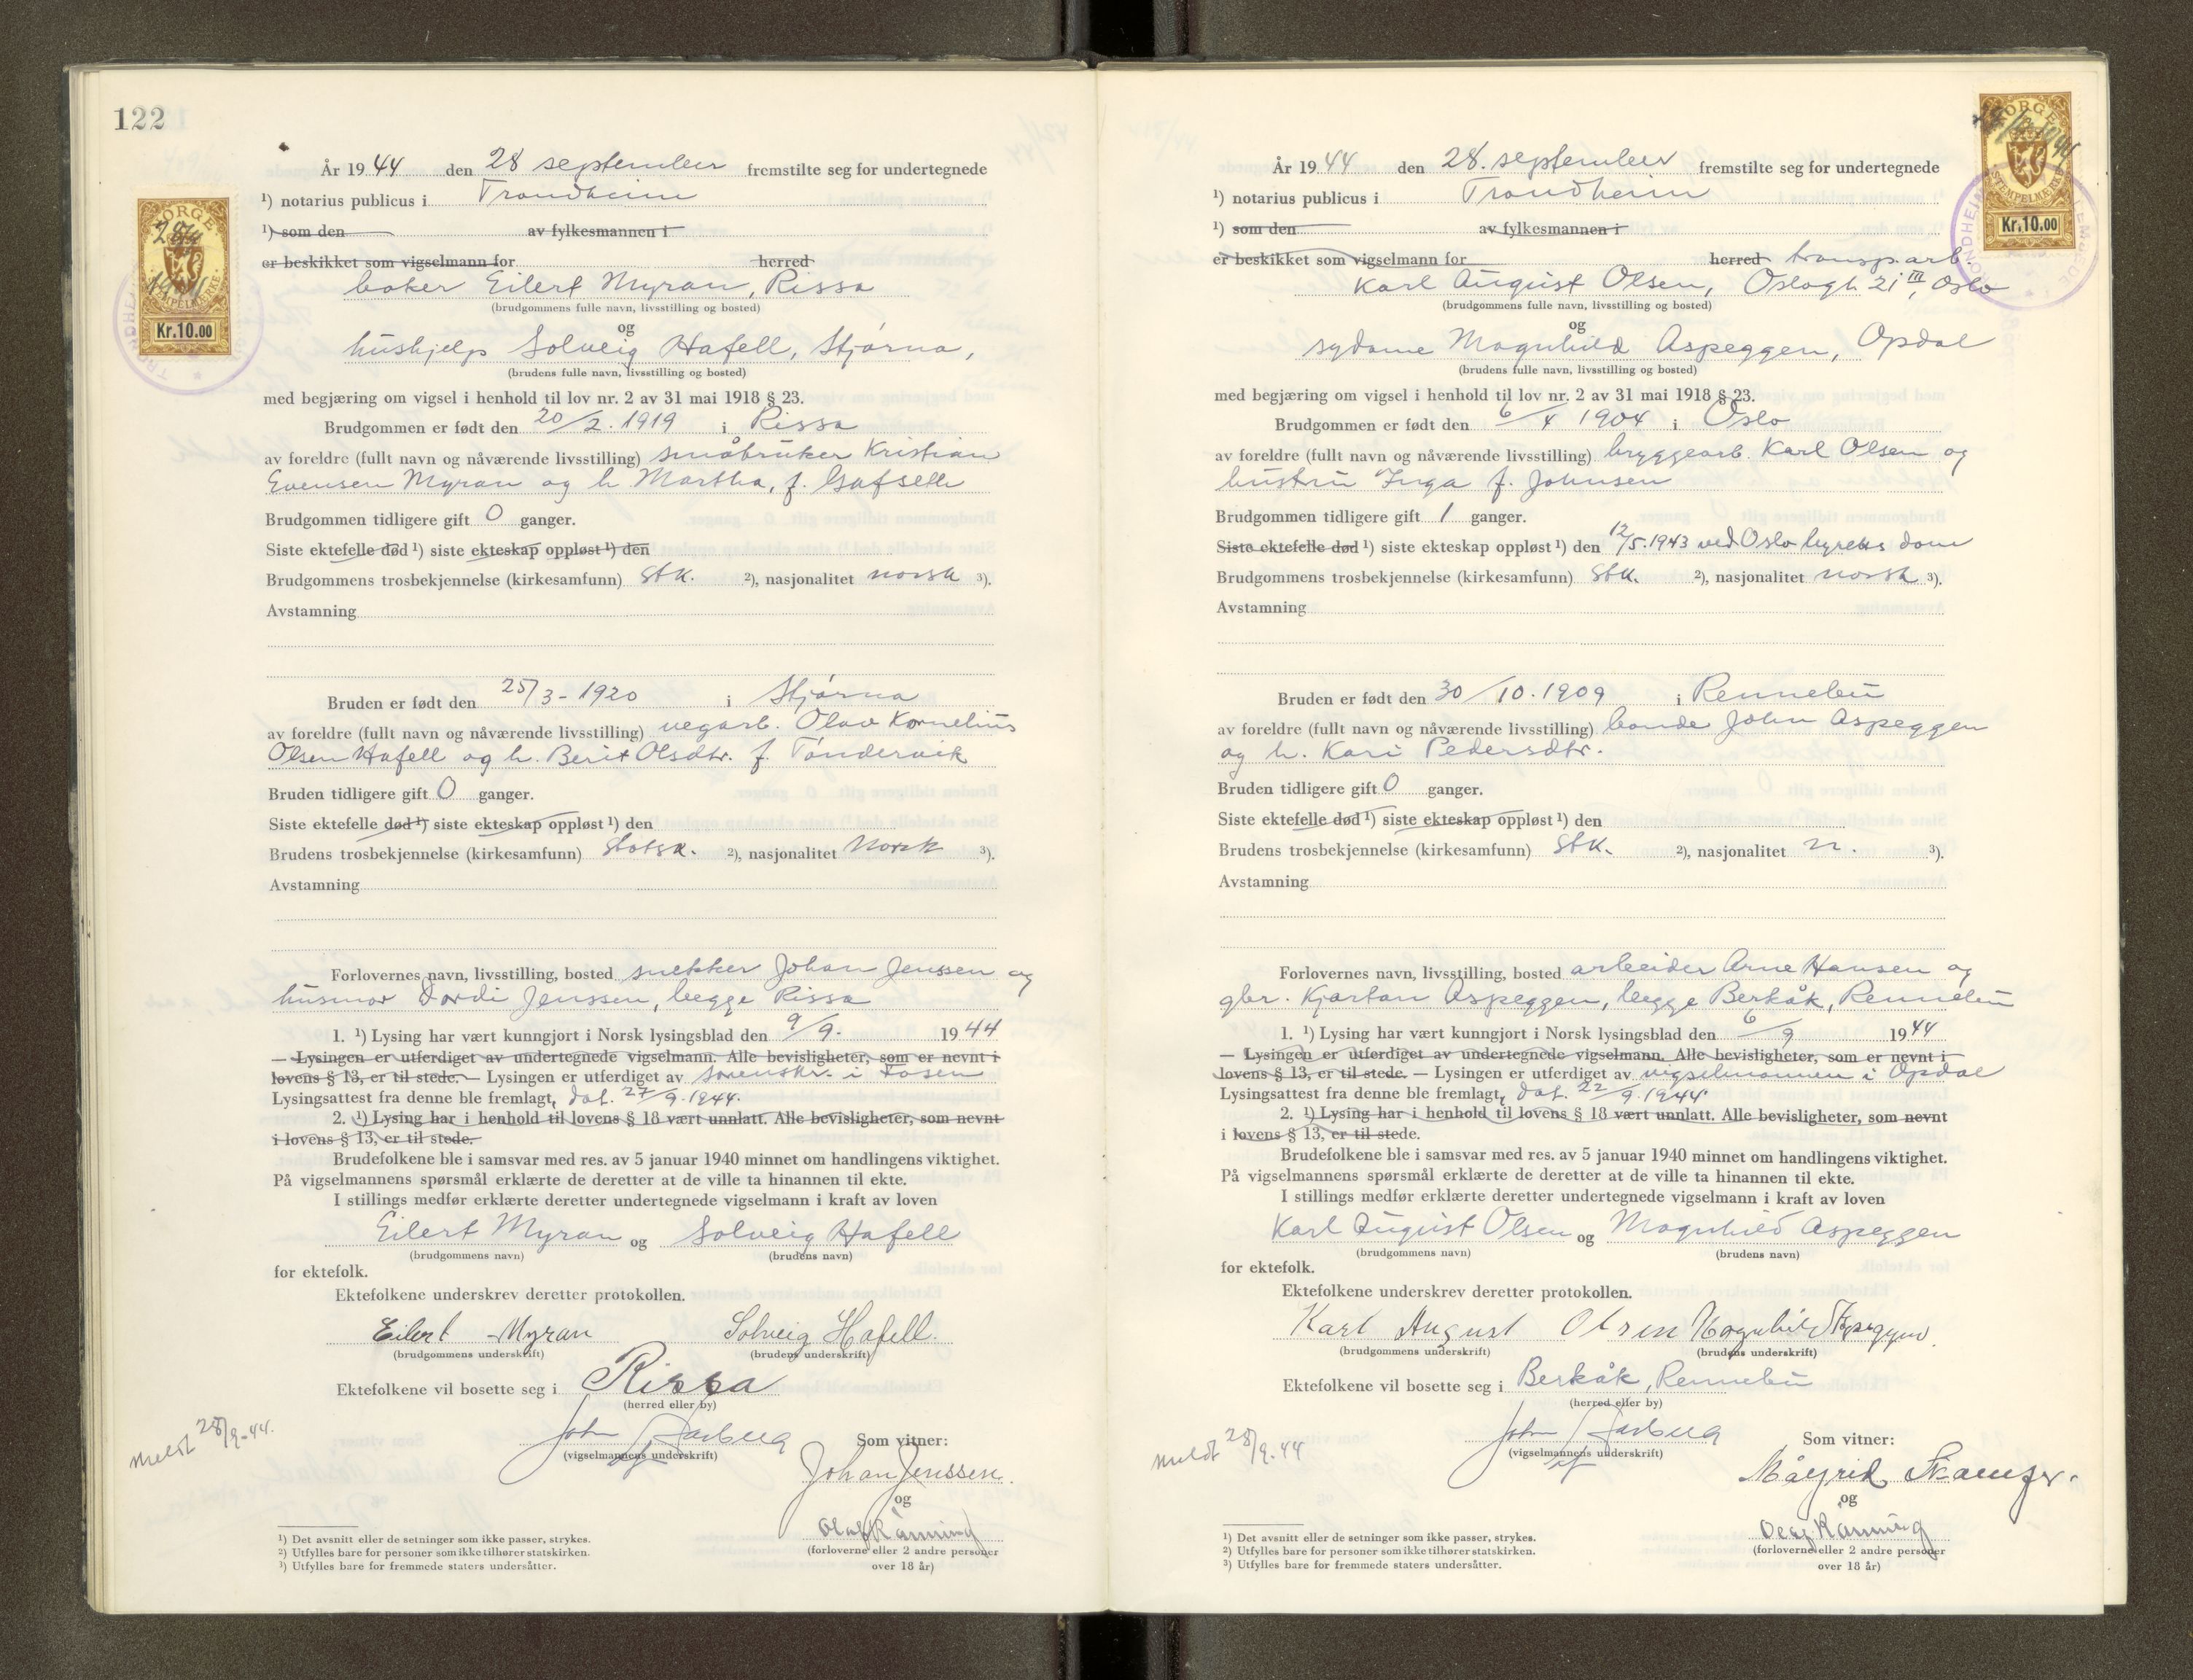 122
År 1944 den 28 september fremstilte seg for undertegnede
¹) notarius publicus i Trondheim
¹) som den av fylkesmannen i
er beskikket som vigselmann for herred
baker Eilert Myran, Rissa
(brudgommens fulle navn, livsstilling og bosted)
og
hushjelp Solveig Hafell, Stjørna,
(brudens fulle navn, livsstilling og bosted)
med begjæring om vigsel i henhold til lov nr. 2 av 31 mai 1918 § 23.
Brudgommen er født den 20/2. 1919 i Rissa
av foreldre (fullt navn og nåværende livsstilling) småbruker Kristian
Evensen Myran og h. Martha, f.
Brudgommen tidligere gift 0 ganger.
Siste ektefelle død ¹) siste ekteskap oppløst ¹) den
Brudgommens trosbekjennelse (kirkesamfunn) Stk. ²), nasjonalitet norsk ³).
Avstamning
Bruden er født den 25/3 - 1920 i Stjørna
av foreldre (fullt navn og nåværende livsstilling) vegarb. Olav Kornelius
Olsen Hafell og h. Berit Olsdtr. f. Tøndervik
Bruden tidligere gift 0 ganger.
Siste ektefelle død ¹) siste ekteskap oppløst ¹) den
Brudens trosbekjennelse (kirkesamfunn) Statsk. ²), nasjonalitet Norsk ³).
Avstamning
Forlovernes navn, livsstilling, bosted snekker Johan Jenssen og
husmor Jenssen, begge Rissa
1. ¹) Lysing har vært kunngjort i Norsk lysingsblad den 9/9. 1944
— Lysingen er utferdiget av undertegnede vigselmann. Alle bevisligheter, som er nevnt i
lovens § 13, er til stede. — Lysingen er utferdiget av sorenskr. i Fosen
Lysingsattest fra denne ble fremlagt, dat. 27/9. 1944.
2. ¹) Lysing har i henhold til lovens § 18 vært unnlatt. Alle bevisligheter, som nevnt
i lovens § 13, er til stede.
Brudefolkene ble i samsvar med res. av 5 januar 1940 minnet om handlingens viktighet.
På vigselmannens spørsmål erklærte de deretter at de ville ta hinannen til ekte.
I stillings medfør erklærte deretter undertegnede vigselmann i kraft av loven
Eilert Myran og Solveig Hafell
(brudgommens navn) (brudens navn)
for ektefolk.
Ektefolkene underskrev deretter protokollen.
Eilert Myran Solveig Hafell.
(brudgommens underskrift) (brudens underskrift)
Ektefolkene vil bosette seg i Rissa
(herred eller by)
meldt 28/9-44.
John
(vigselmannens underskrift)
Som vitner:
Johan Jenssen.
og
Olaf Rønning
(forloverne eller 2 andre personer
over 18 år)
¹) Det avsnitt eller de setninger som ikke passer, strykes.
²) Utfylles bare for personer som ikke tilhører statskirken.
³) Utfylles bare for fremmede staters undersåtter.
NORGE
STEMPELMERKE
Kr.10.00
År 1944 den 28. september fremstilte seg for undertegnede
¹) notarius publicus i Trondheim
¹) som den av fylkesmannen i
er beskikket som vigselmann for herred transp.arb.
Karl August Olsen, Oslogt. 21 III, Oslo
(brudgommens fulle navn, livsstilling og bosted)
og
sydame Magnhild Aspeggen, Opdal
(brudens fulle navn, livsstilling og bosted)
med begjæring om vigsel i henhold til lov nr. 2 av 31 mai 1918 § 23.
Brudgommen er født den 6/4 1904 i Oslo
av foreldre (fullt navn og nåværende livsstilling) bryggearb. Karl Olsen og
hustru Inga f. Johnsen
Brudgommen tidligere gift 1 ganger.
Siste ektefelle død ¹) siste ekteskap oppløst ¹) den 12/5. 1943 ved Oslo byretts dom
Brudgommens trosbekjennelse (kirkesamfunn) Stk. ²), nasjonalitet norsk ³).
Avstamning
Bruden er født den 30/10. 1909 i Rennebu
av foreldre (fullt navn og nåværende livsstilling) bonde John Aspeggen
og h. Kari Pedersdtr.
Bruden tidligere gift 0 ganger.
Siste ektefelle død ¹) siste ekteskap oppløst ¹) den
Brudens trosbekjennelse (kirkesamfunn) Stk. ²), nasjonalitet n. ³).
Avstamning
Forlovernes navn, livsstilling, bosted arbeider Arne Hansen og
gbr. Kjartan Aspeggen, begge Berkåk, Rennebu
1. ¹) Lysing har vært kunngjort i Norsk lysingsblad den 6/9 1944
— Lysingen er utferdiget av undertegnede vigselmann. Alle bevisligheter, som er nevnt i
lovens § 13, er til stede. — Lysingen er utferdiget av vigselmannen i Opdal
Lysingsattest fra denne ble fremlagt, dat. 22/9. 1944.
2. ¹) Lysing har i henhold til lovens § 18 vært unnlatt. Alle bevisligheter, som nevnt
i lovens § 13, er til stede.
Brudefolkene ble i samsvar med res. av 5 januar 1940 minnet om handlingens viktighet.
På vigselmannens spørsmål erklærte de deretter at de ville ta hinannen til ekte.
I stillings medfør erklærte deretter undertegnede vigselmann i kraft av loven
Karl August Olsen og Magnhild Aspeggen
(brudgommens navn) (brudens navn)
for ektefolk.
Ektefolkene underskrev deretter protokollen.
Karl August Olsen Magnhild Aspeggen.
(brudgommens underskrift) (brudens underskrift)
Ektefolkene vil bosette seg i Berkåk, Rennebu
(herred eller by)
meldt 28/9.44
John
(vigselmannens underskrift)
Som vitner:
Målfrid
og
Olaf Rønning
(forloverne eller 2 andre personer
over 18 år)
¹) Det avsnitt eller de setninger som ikke passer, strykes.
²) Utfylles bare for personer som ikke tilhører statskirken.
³) Utfylles bare for fremmede staters undersåtter.
NORGE
STEMPELMERKE
Kr.10.00